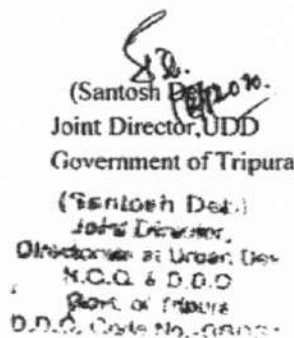 (Santosh De
Joint Director, UDD
Government of Tripura
(Santosh Deb)
Joint Director,
Directorate of Urban Dev
H.O.O & D.D.O
Govt. of Tripura
D.D.O. Code No.